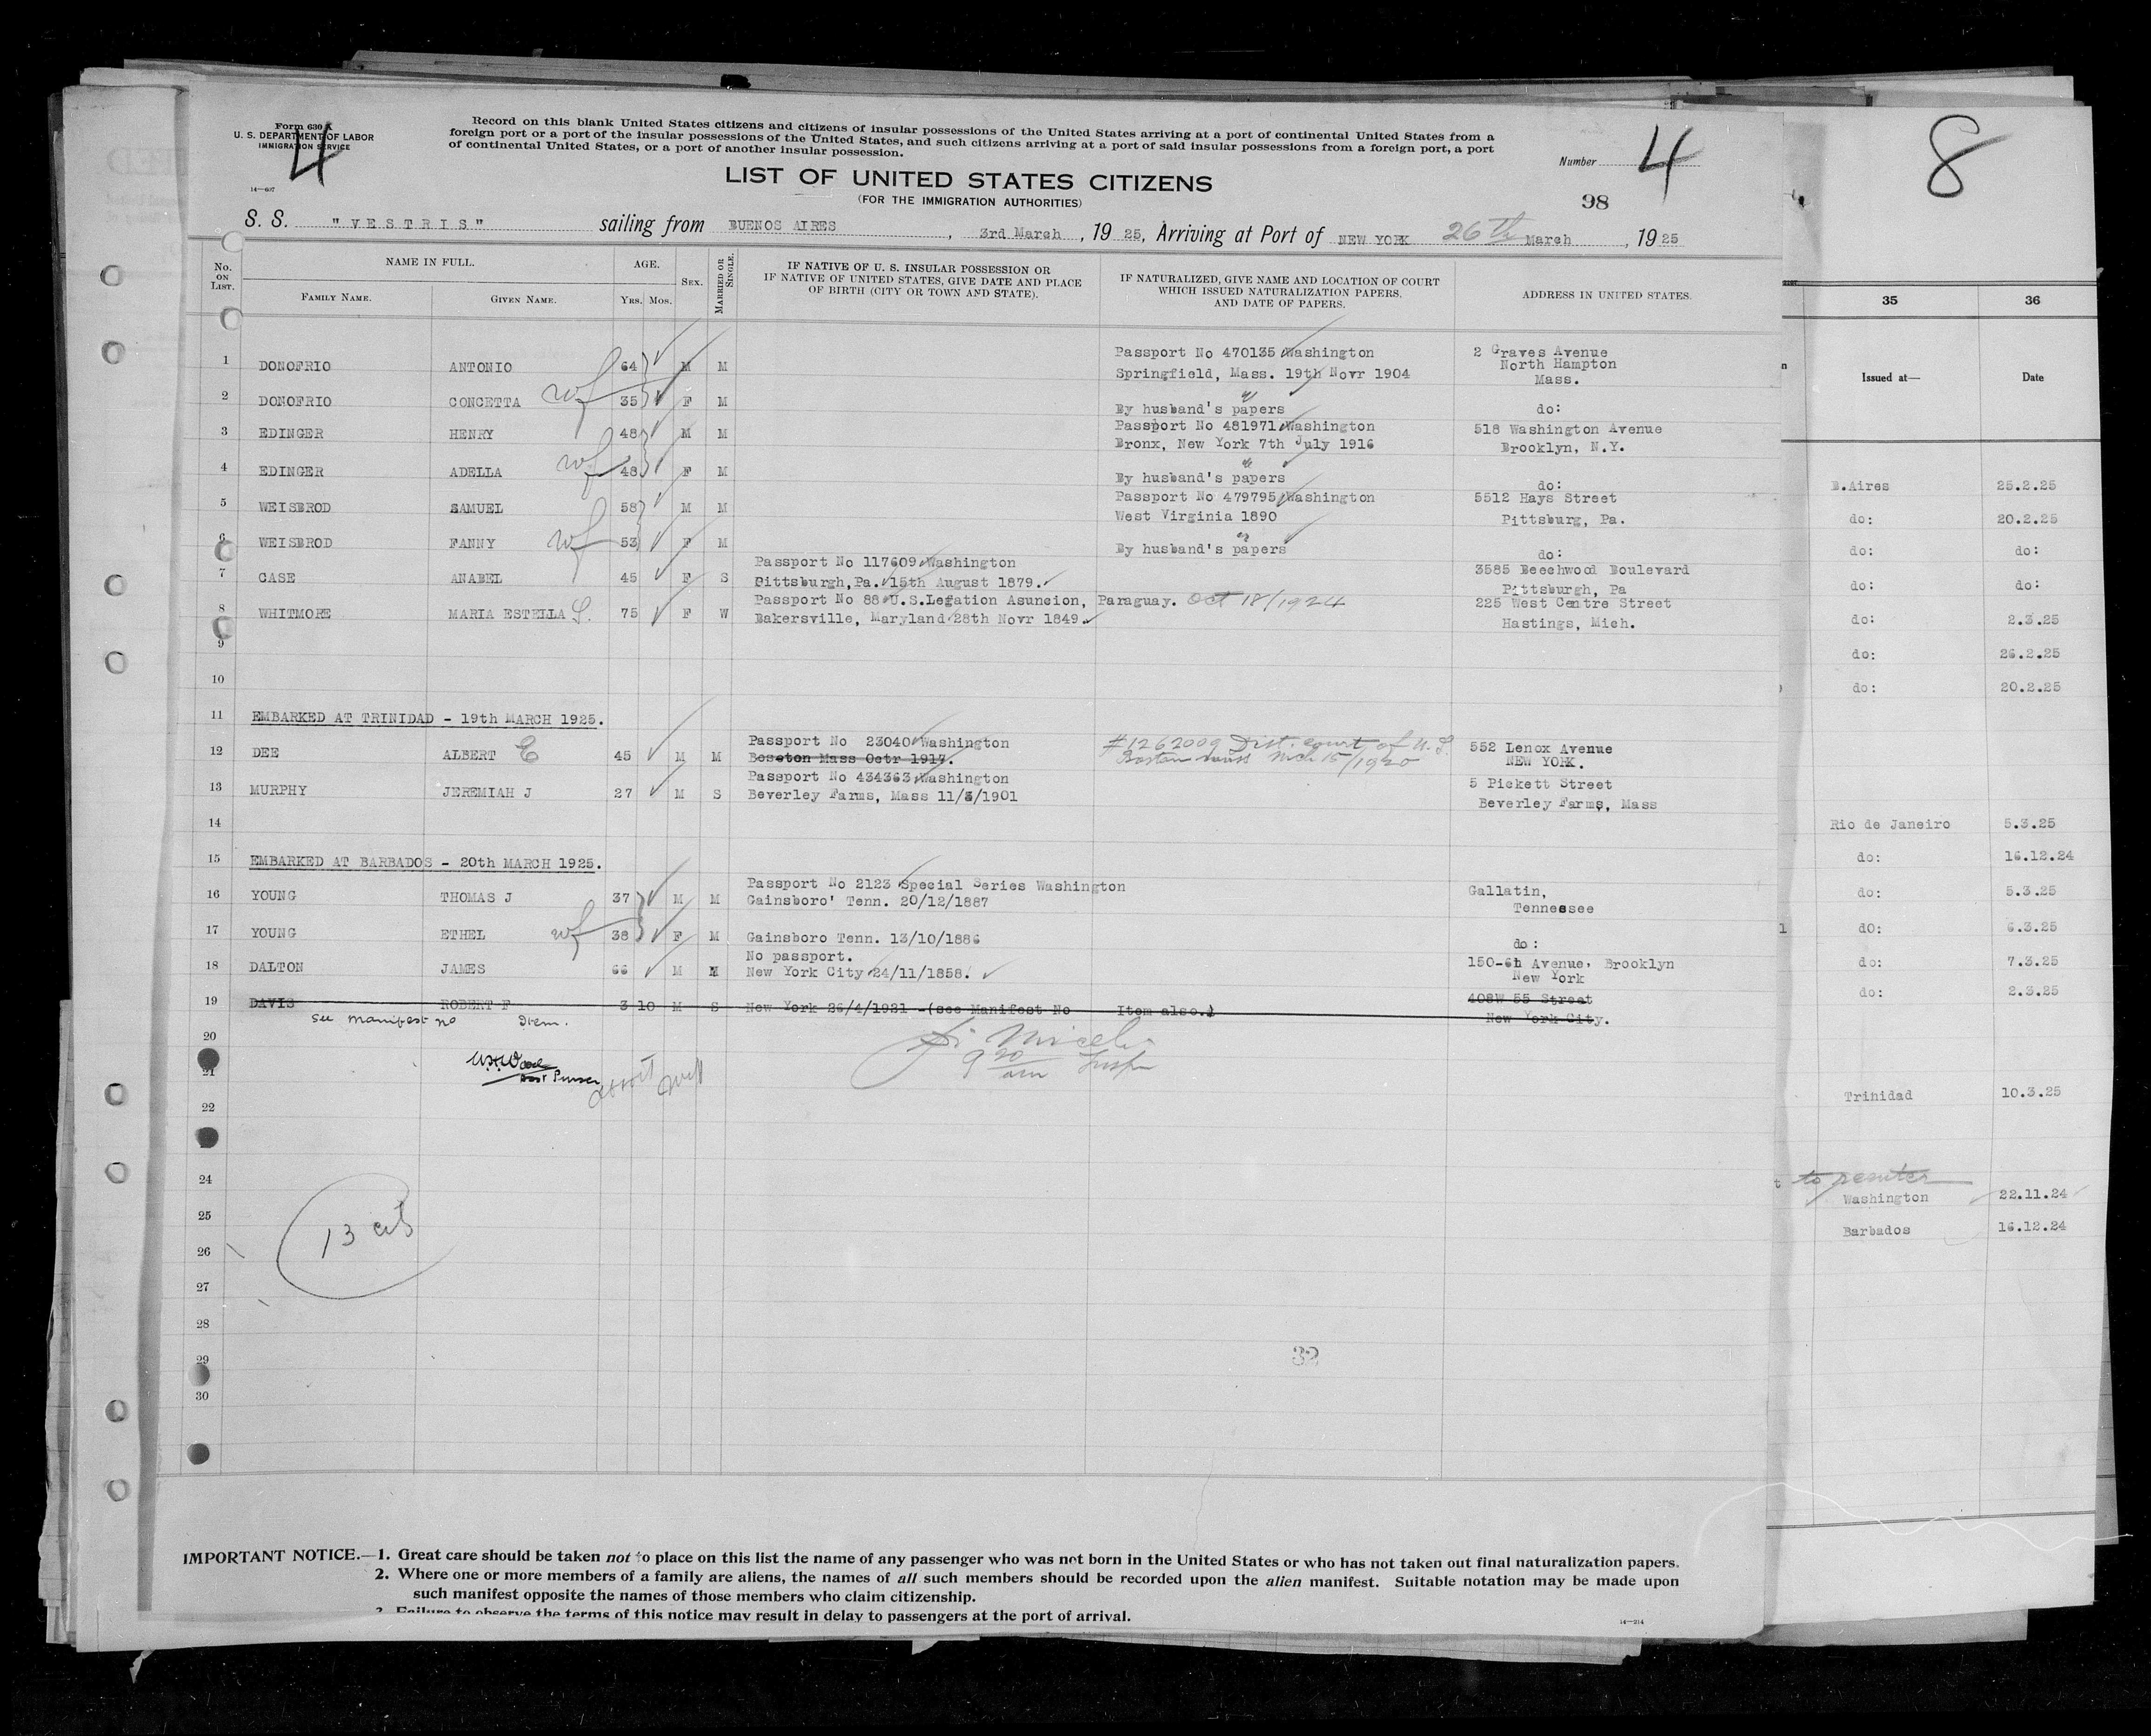 Form 630 A
U. S. DEPARTMENT OF LABOR
IMMIGRATION SERVICE
4
14—607
Record on this blank United States citizens and citizens of insular possessions of the United States arriving at a port of continental United States from a
foreign port or a port of the insular possessions of the United States, and such citizens arriving at a port of said insular possessions from a foreign port, a port
of continental United States, or a port of another insular possession.
Number 4
LIST OF UNITED STATES CITIZENS
(FOR THE IMMIGRATION AUTHORITIES)
98
S. S. "VESTRIS" sailing from BUENOS AIRES, 3rd March, 1925, Arriving at Port of NEW YORK 26th March, 1925
No. ON LIST. NAME IN FULL. FAMILY NAME. GIVEN NAME. AGE. Yrs. Mos. SEX. MARRIED OR SINGLE. IF NATIVE OF U. S. INSULAR POSSESSION OR IF NATIVE OF UNITED STATES, GIVE DATE AND PLACE OF BIRTH (CITY OR TOWN AND STATE). IF NATURALIZED, GIVE NAME AND LOCATION OF COURT WHICH ISSUED NATURALIZATION PAPERS, AND DATE OF PAPERS. ADDRESS IN UNITED STATES.
1 DONOFRIO ANTONIO 64 M M Passport No 470135 Washington 2 Graves Avenue
Springfield, Mass. 19th Novr 1904 North Hampton
Mass.
2 DONOFRIO CONCETTA wf 35 F M By husband's papers do:
3 EDINGER HENRY 48 M M Passport No 481971 Washington 518 Washington Avenue
Bronx, New York 7th July 1916 Brooklyn, N.Y.
4 EDINGER ADELLA wf 48 F M By husband's papers do:
5 WEISBROD SAMUEL 58 M M Passport No 479795 Washington 5512 Hays Street
West Virginia 1890 Pittsburg, Pa.
6 WEISBROD FANNY wf 53 F M By husband's papers do:
7 CASE ANABEL 45 F S Passport No 117609 Washington 3585 Beechwood Boulevard
Pittsburgh, Pa. 15th August 1879. Pittsburgh, Pa
8 WHITMORE MARIA ESTELLA S. 75 F W Passport No 88 U.S.Legation Asuncion, Paraguay. Oct 18/1924 225 West Centre Street
Bakersville, Maryland 28th Novr 1849 Hastings, Mich.
9
10
11 EMBARKED AT TRINIDAD - 19th MARCH 1925.
12 DEE ALBERT E 45 M M Passport No 23040 Washington #1262009 Dist. court of U. S. 552 Lenox Avenue
Boseton Mass Octr 1917. Boston Mass Mch 15/1920 NEW YORK.
13 MURPHY JEREMIAH J 27 M S Passport No 434363 Washington 5 Pickett Street
Beverley Farms, Mass 11/3/1901 Beverley Farms, Mass
14
15 EMBARKED AT BARBADOS - 20th MARCH 1925.
16 YOUNG THOMAS J 37 M M Passport No 2123 Special Series Washington Gallatin,
Gainsboro' Tenn. 20/12/1887 Tennessee
17 YOUNG ETHEL wf 38 F M Gainsboro Tenn. 13/10/1886 do:
18 DALTON JAMES 66 M M No passport. 150-6h Avenue, Brooklyn
New York City 24/11/1858. New York
19 DAVIS ROBERT F 3 10 M S New York 26/4/1921 -(see Manifest No Item also.) 408W 55 Street
New York City.
see manifest no Item.
20
9 20 am Insp
21
Asst Purser
22
24
25
13 cit
26
27
28
29
32
30
IMPORTANT NOTICE.—1. Great care should be taken not to place on this list the name of any passenger who was not born in the United States or who has not taken out final naturalization papers.
2. Where one or more members of a family are aliens, the names of all such members should be recorded upon the alien manifest. Suitable notation may be made upon
such manifest opposite the names of those members who claim citizenship.
3. Failure to observe the terms of this notice may result in delay to passengers at the port of arrival.
14—214
8
35 36
Issued at— Date
B.Aires 25.2.25
do: 20.2.25
do: do:
do: do:
do: 2.3.25
do: 26.2.25
do: 20.2.25
Rio de Janeiro 5.3.25
do: 16.12.24
do: 5.3.25
dO: 6.3.25
do: 7.3.25
do: 2.3.25
Trinidad 10.3.25
Washington 22.11.24
Barbados 16.12.24